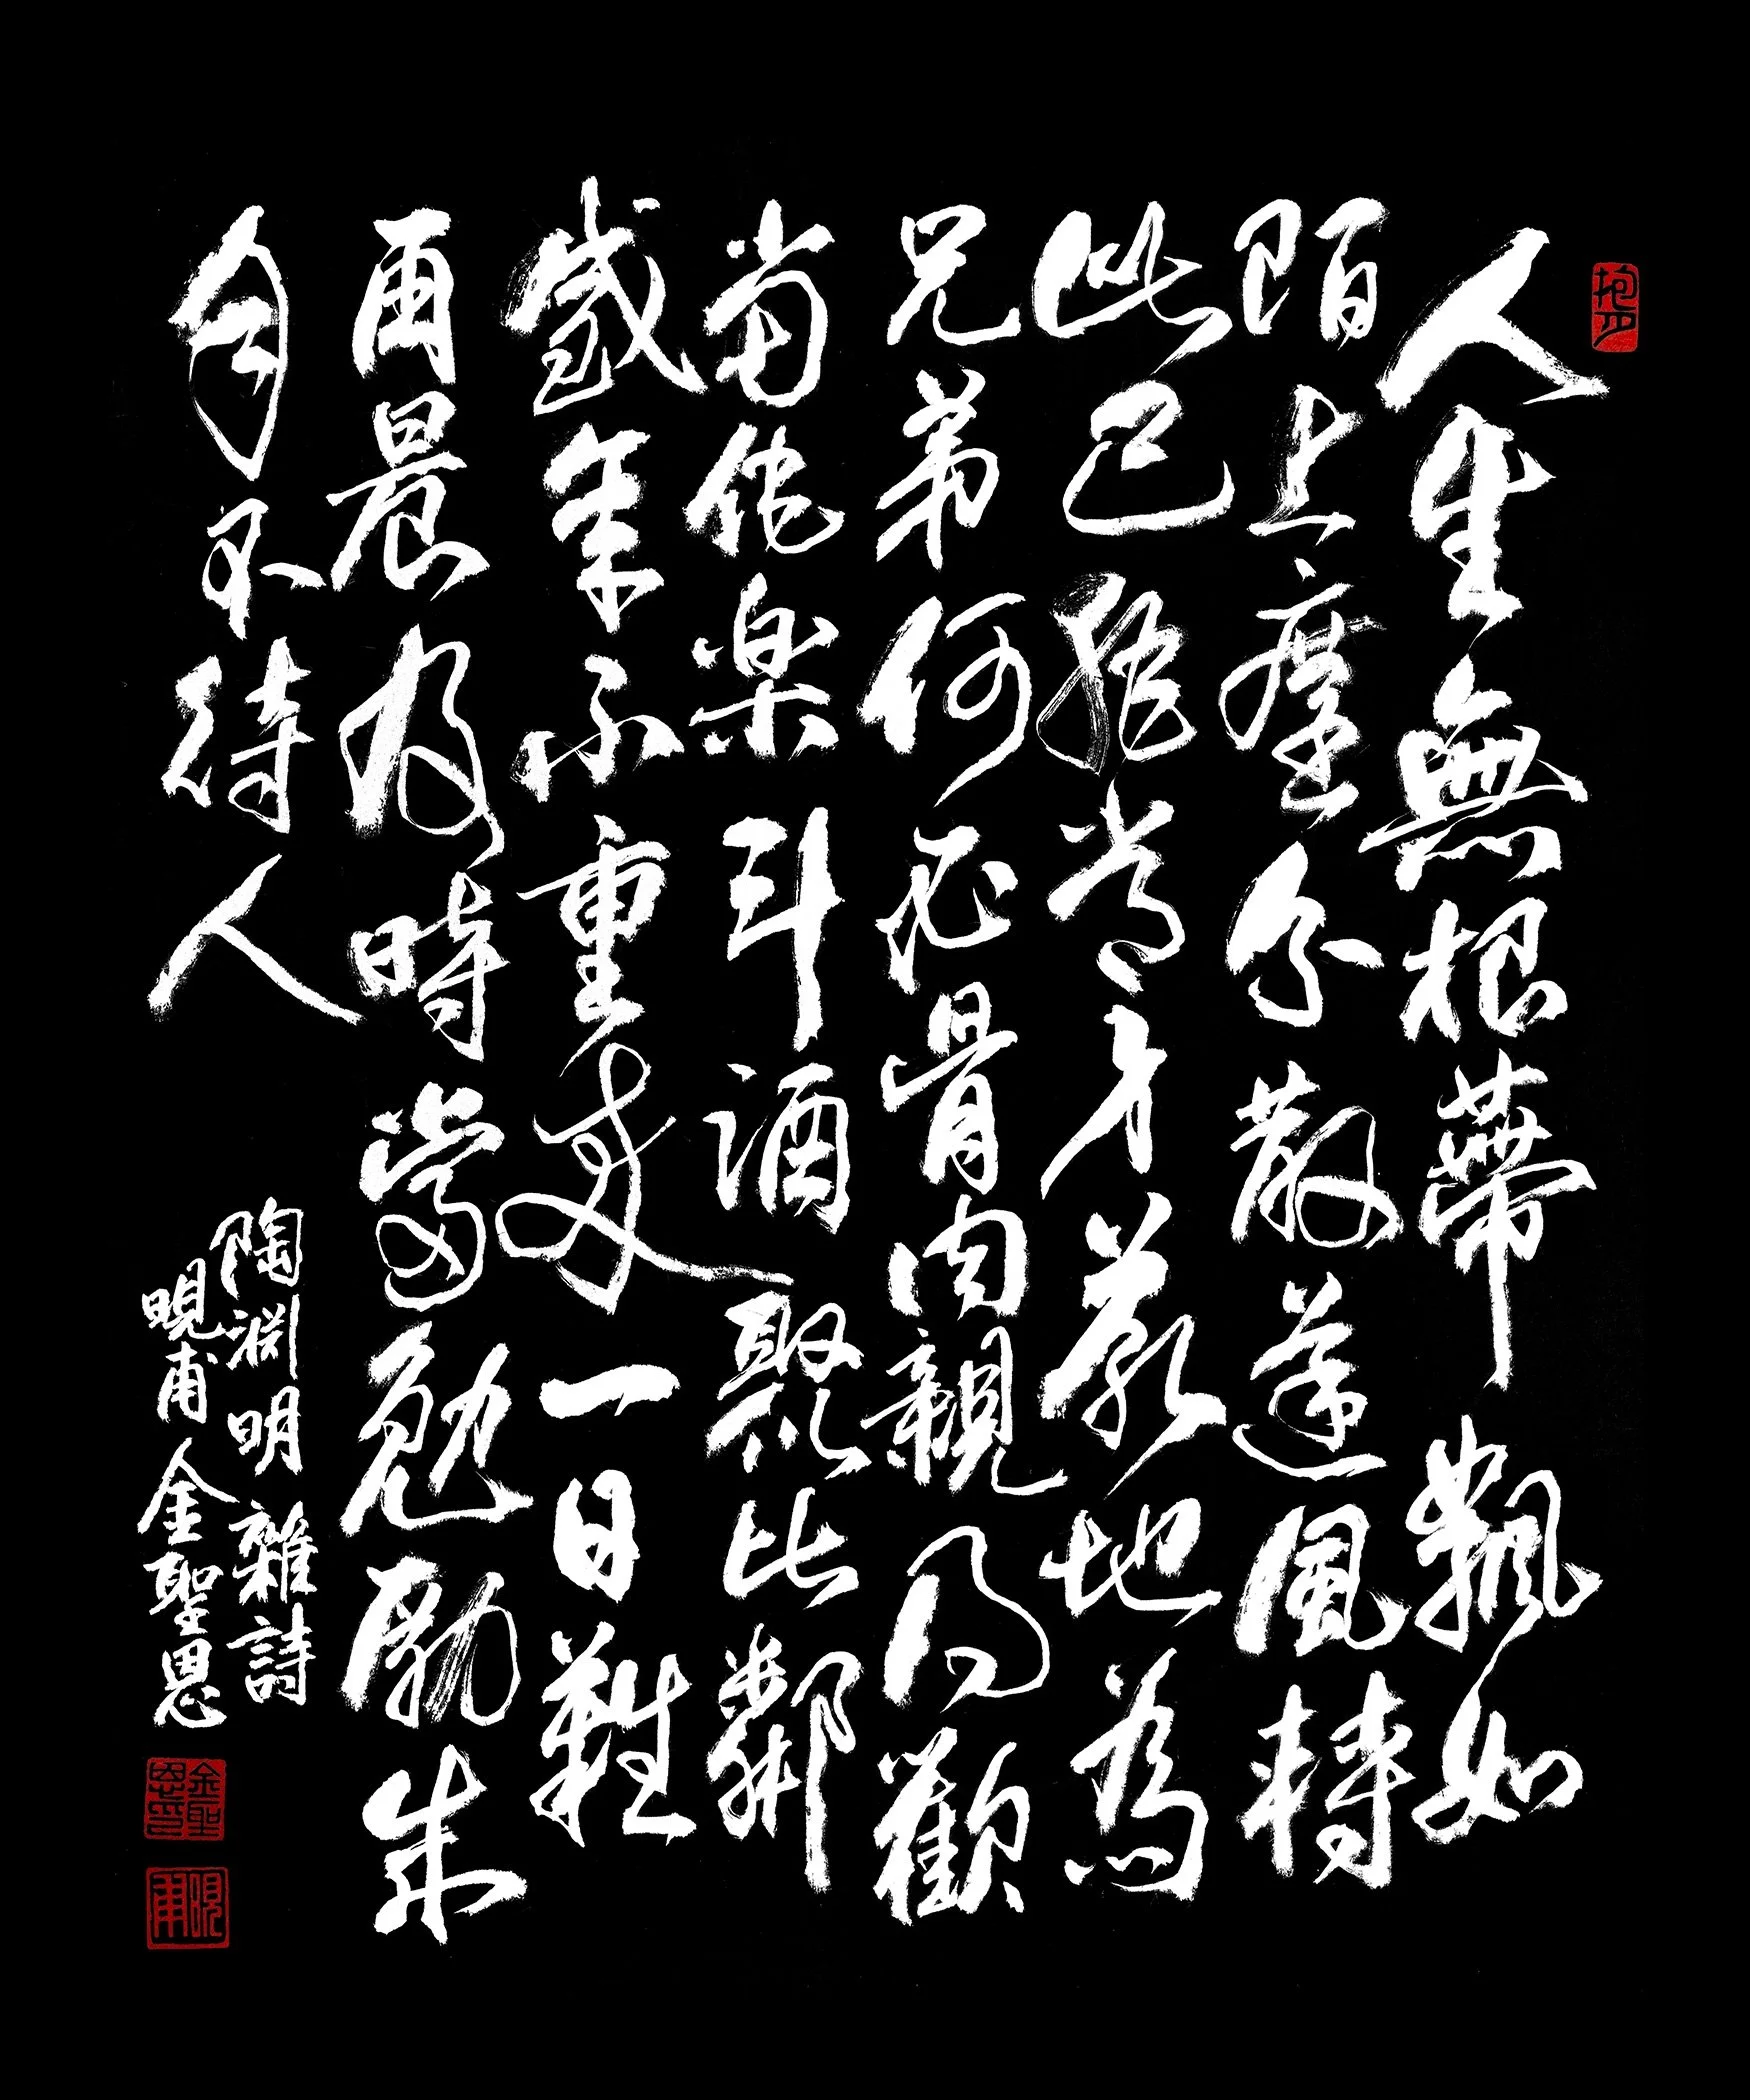 人生無根蒂飄如
陌上塵分散逐風轉
此已非常身落地為
兄弟何必骨肉親得歡
當作樂斗酒聚比鄰
盛年不重來一日難
再晨及時當勉勵歲
月不待人
陶淵明 雜詩
晛甫 金聖恩
金聖恩印
晛甫